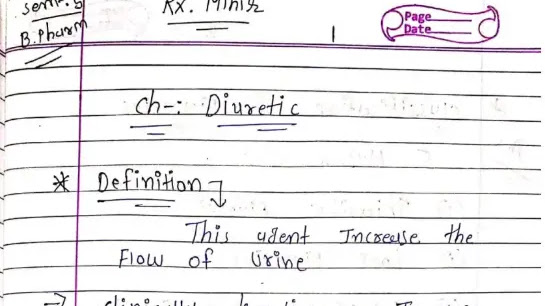 Sem-5
B.Pharm
Page
Date
Ch-: Diuretic
* Definition ↴
This agent Increase the
Flow of Urine